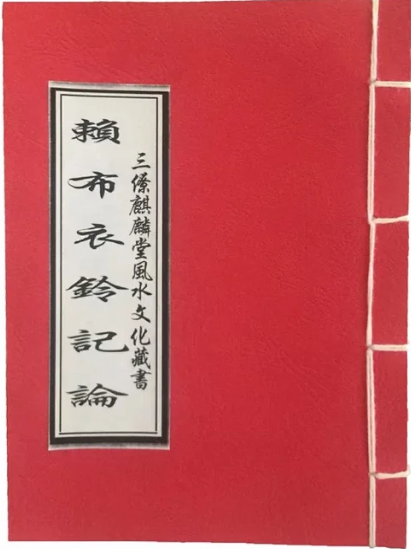 三僚麒麟堂風水文化藏書
賴布衣鈐記論